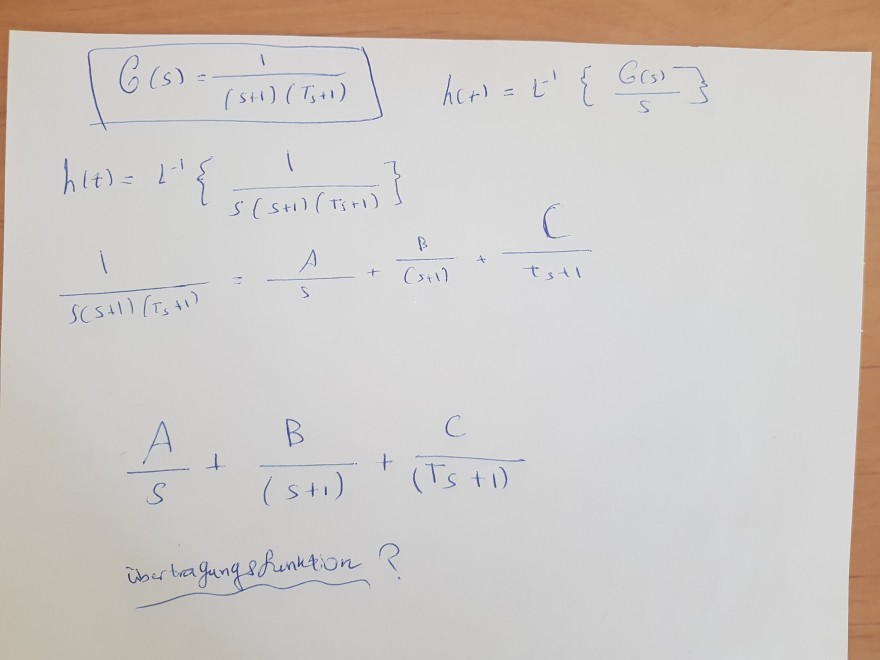 G(s) = 1 / (s+1)(Ts+1)    h(t) = L⁻¹ { G(s) / s }
h(t) = L⁻¹ { 1 / s(s+1)(Ts+1) }
1 / s(s+1)(Ts+1) = A / s + B / (s+1) + C / Ts+1
A / s + B / (s+1) + C / (Ts+1)
übertragungsfunktion ?